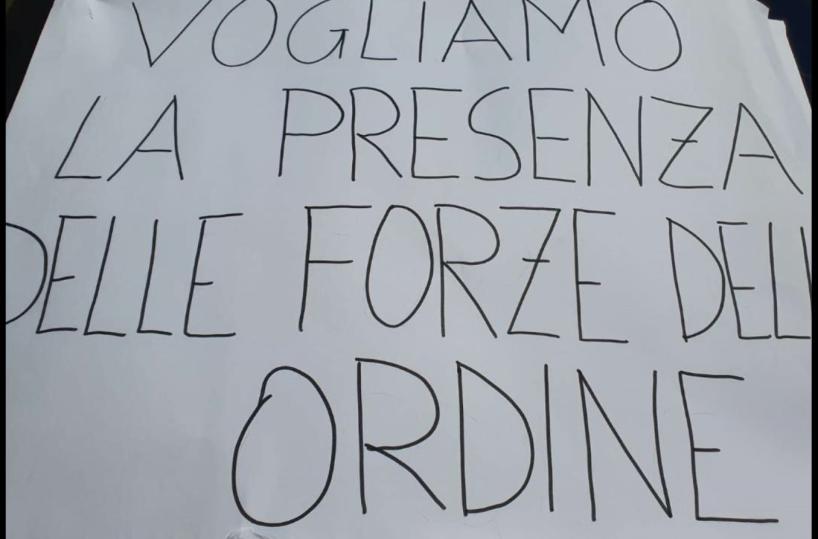 VOGLIAMO
LA PRESENZA
DELLE FORZE DELL
ORDINE